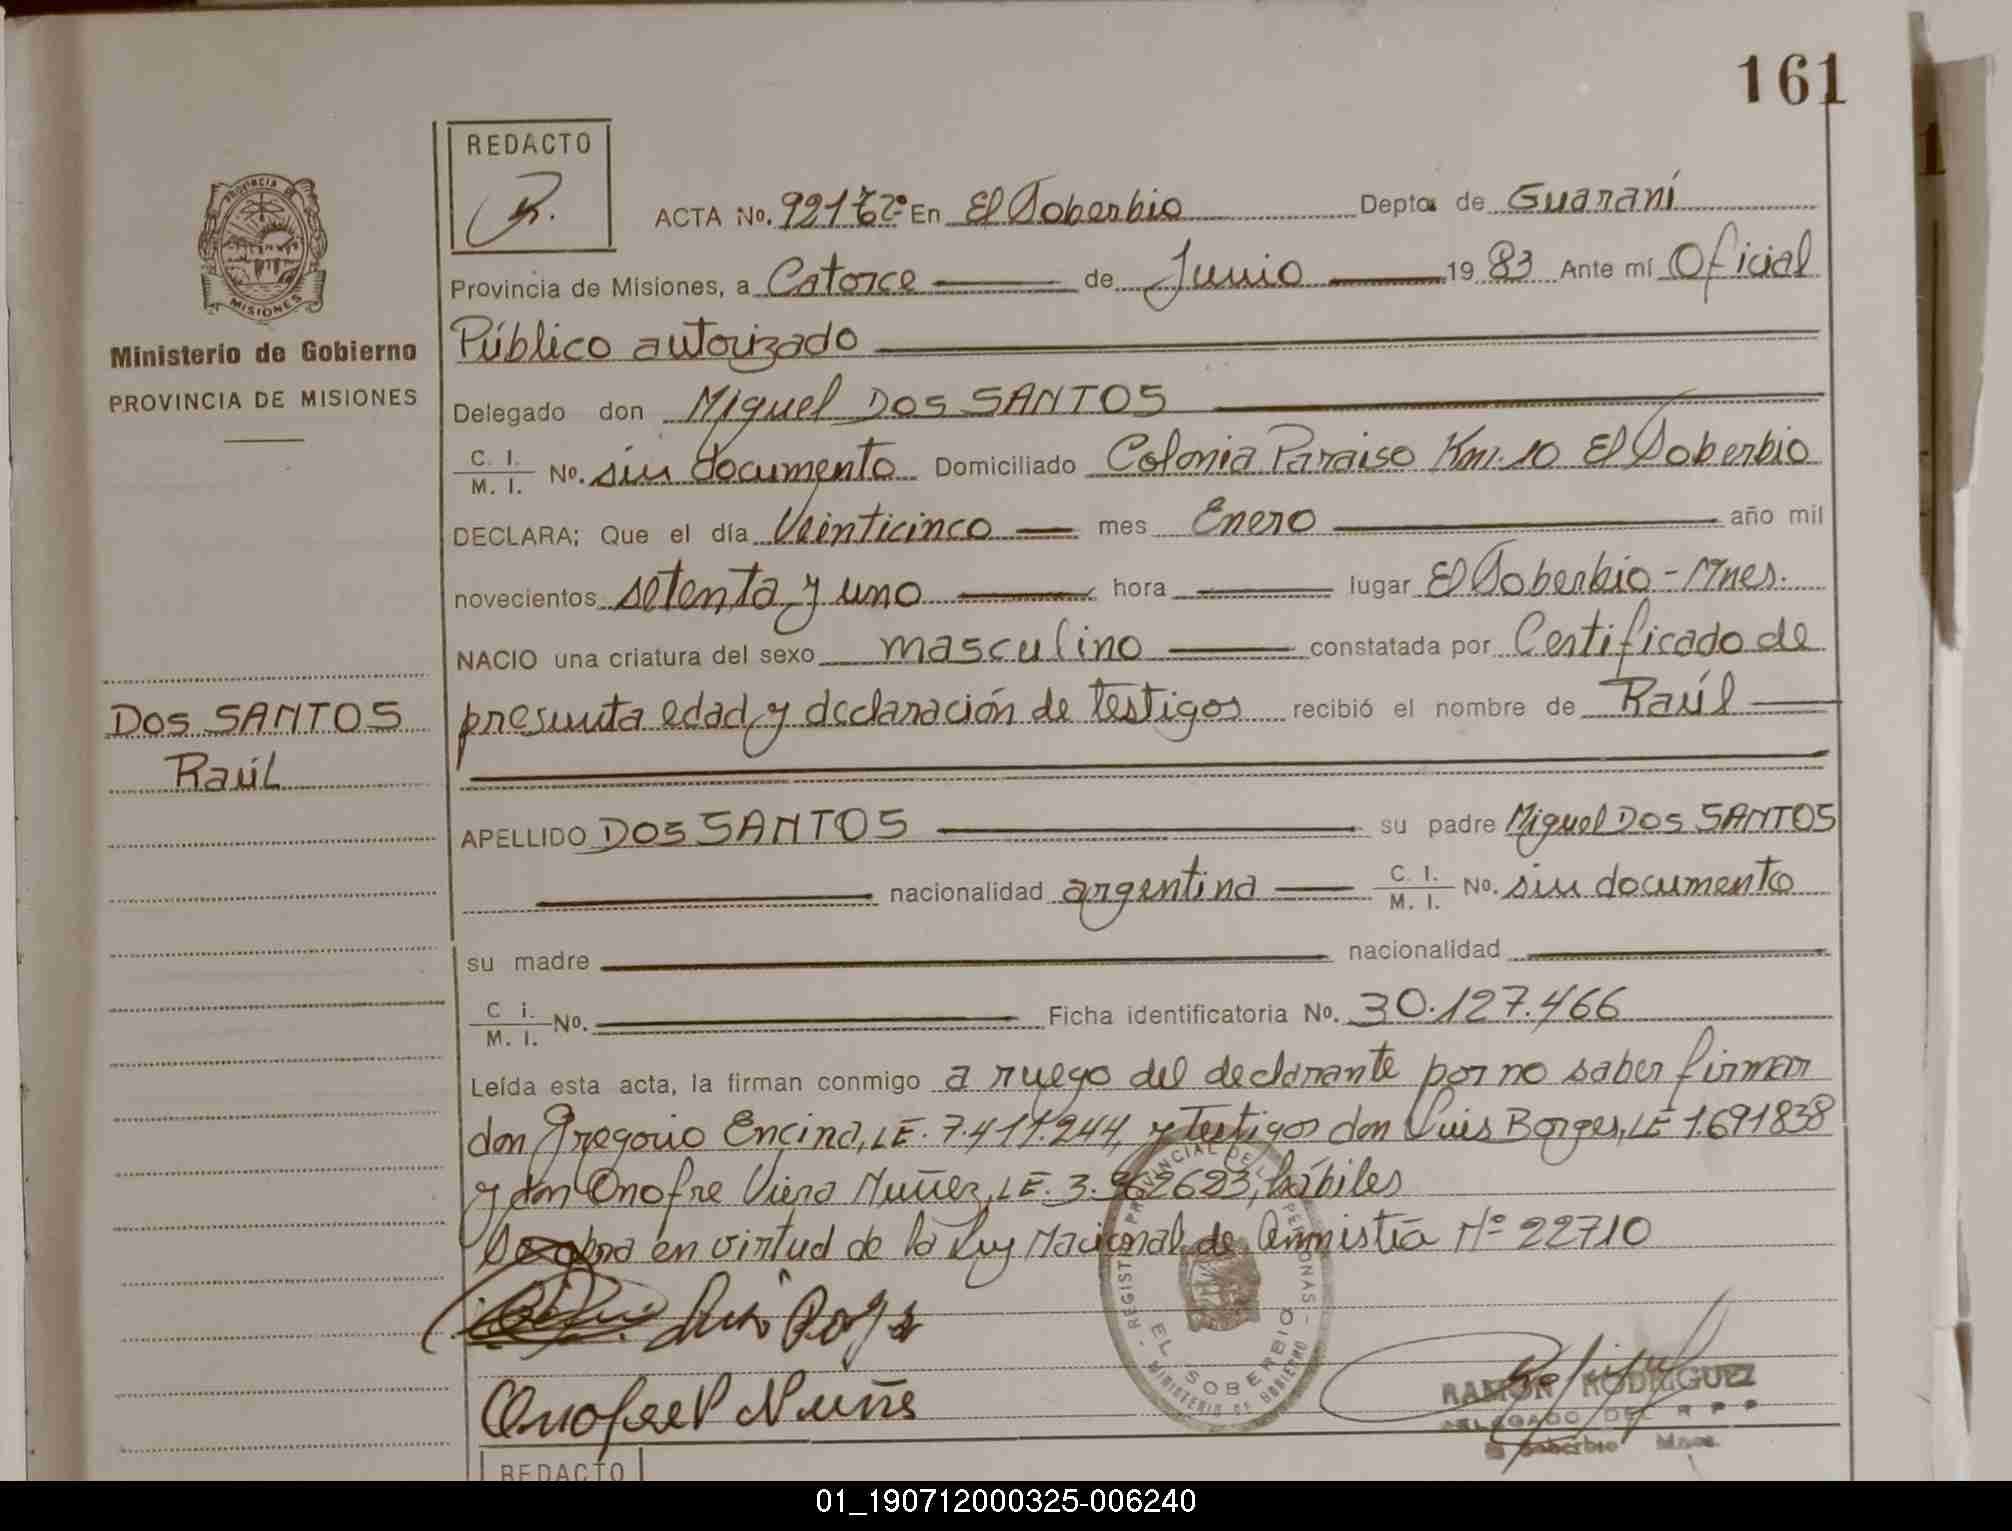 161
REDACTO
R.
ACTA No. 921 Tº 2º En El Soberbio Depto de Guaraní
Provincia de Misiones, a Catorce de Junio 1983 Ante mí Oficial
Público autorizado
PROVINCIA DE
MISIONES
Ministerio de Gobierno
PROVINCIA DE MISIONES
Delegado don Miguel DOS SANTOS
C. I. M. I. No. sin documento Domiciliado Colonia Paraiso Km. 10 El Soberbio
DECLARA; Que el día Veinticinco mes Enero año mil
novecientos setenta y uno hora lugar El Soberbio - Mnes.
NACIO una criatura del sexo masculino constatada por Certificado de
presunta edad y declaración de testigos recibió el nombre de Raúl
DOS SANTOS
Raúl
APELLIDO DOS SANTOS su padre Miguel DOS SANTOS
nacionalidad argentina C. I. M. I. No. sin documento
su madre nacionalidad
C i. M. I. No. Ficha identificatoria No. 30.127.466
Leída esta acta, la firman conmigo a ruego del declarante por no saber firmar
don Gregorio Encina, LE. 7.411.244, y testigos don Luis Borges, LE 1.691838
y don Onofre Viera Nuñez, LE. 3.962623, hábiles
en virtud de la Ley Nacional de Amnistía Nº 22710
Onofre V Nuñe
REGISTRO PROVINCIAL DE LAS PERSONAS
EL SOBERBIO
MINISTERIO DE GOBIERNO
RAMON RODRIGUEZ
DELEGADO DEL R P P
El Soberbio Mnes.
REDACTO
01_190712000325-006240